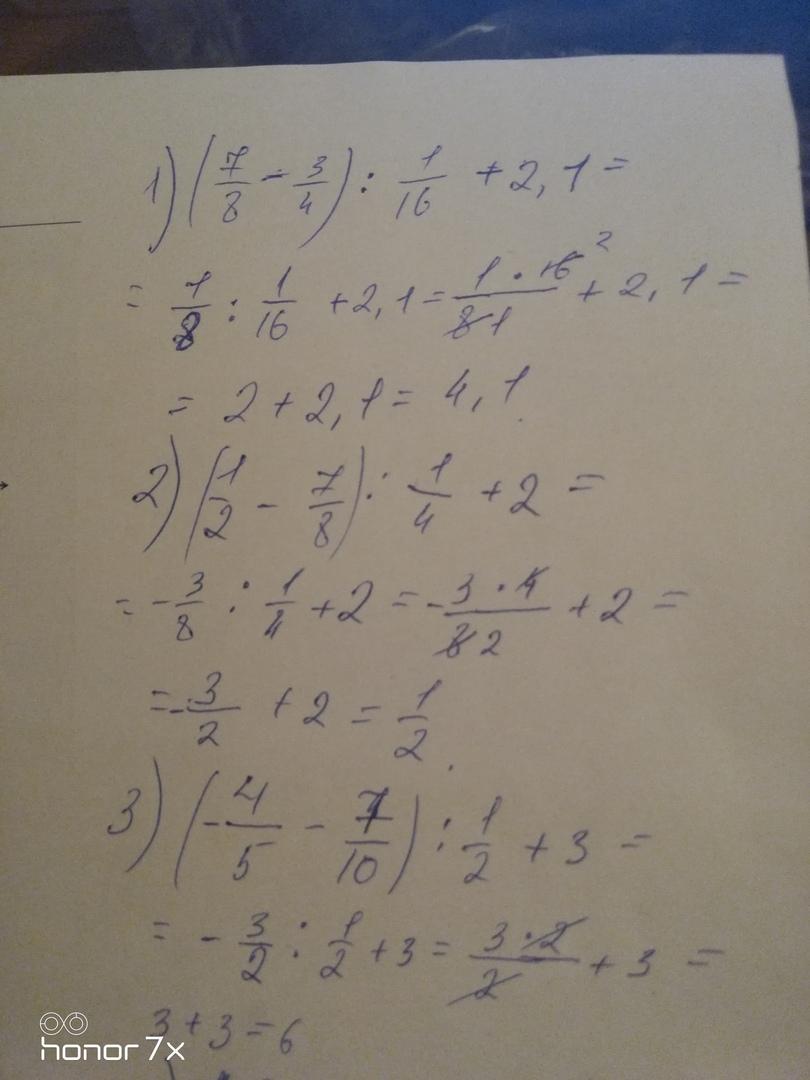 1) (7/8 - 3/4) : 1/16 + 2,1 =
= 1/8 : 1/16 + 2,1 = 1 · 16 2/8 1 + 2,1 =
= 2 + 2,1 = 4,1.
2) (1/2 - 7/8) : 1/4 + 2 =
= - 3/8 : 1/4 + 2 = - 3 · 4/8 2 + 2 =
= - 3/2 + 2 = 1/2.
3) (- 4/5 - 7/10) : 1/2 + 3 =
= - 3/2 : 1/2 + 3 = 3 · 2/2 + 3 =
3 + 3 = 6
honor 7x